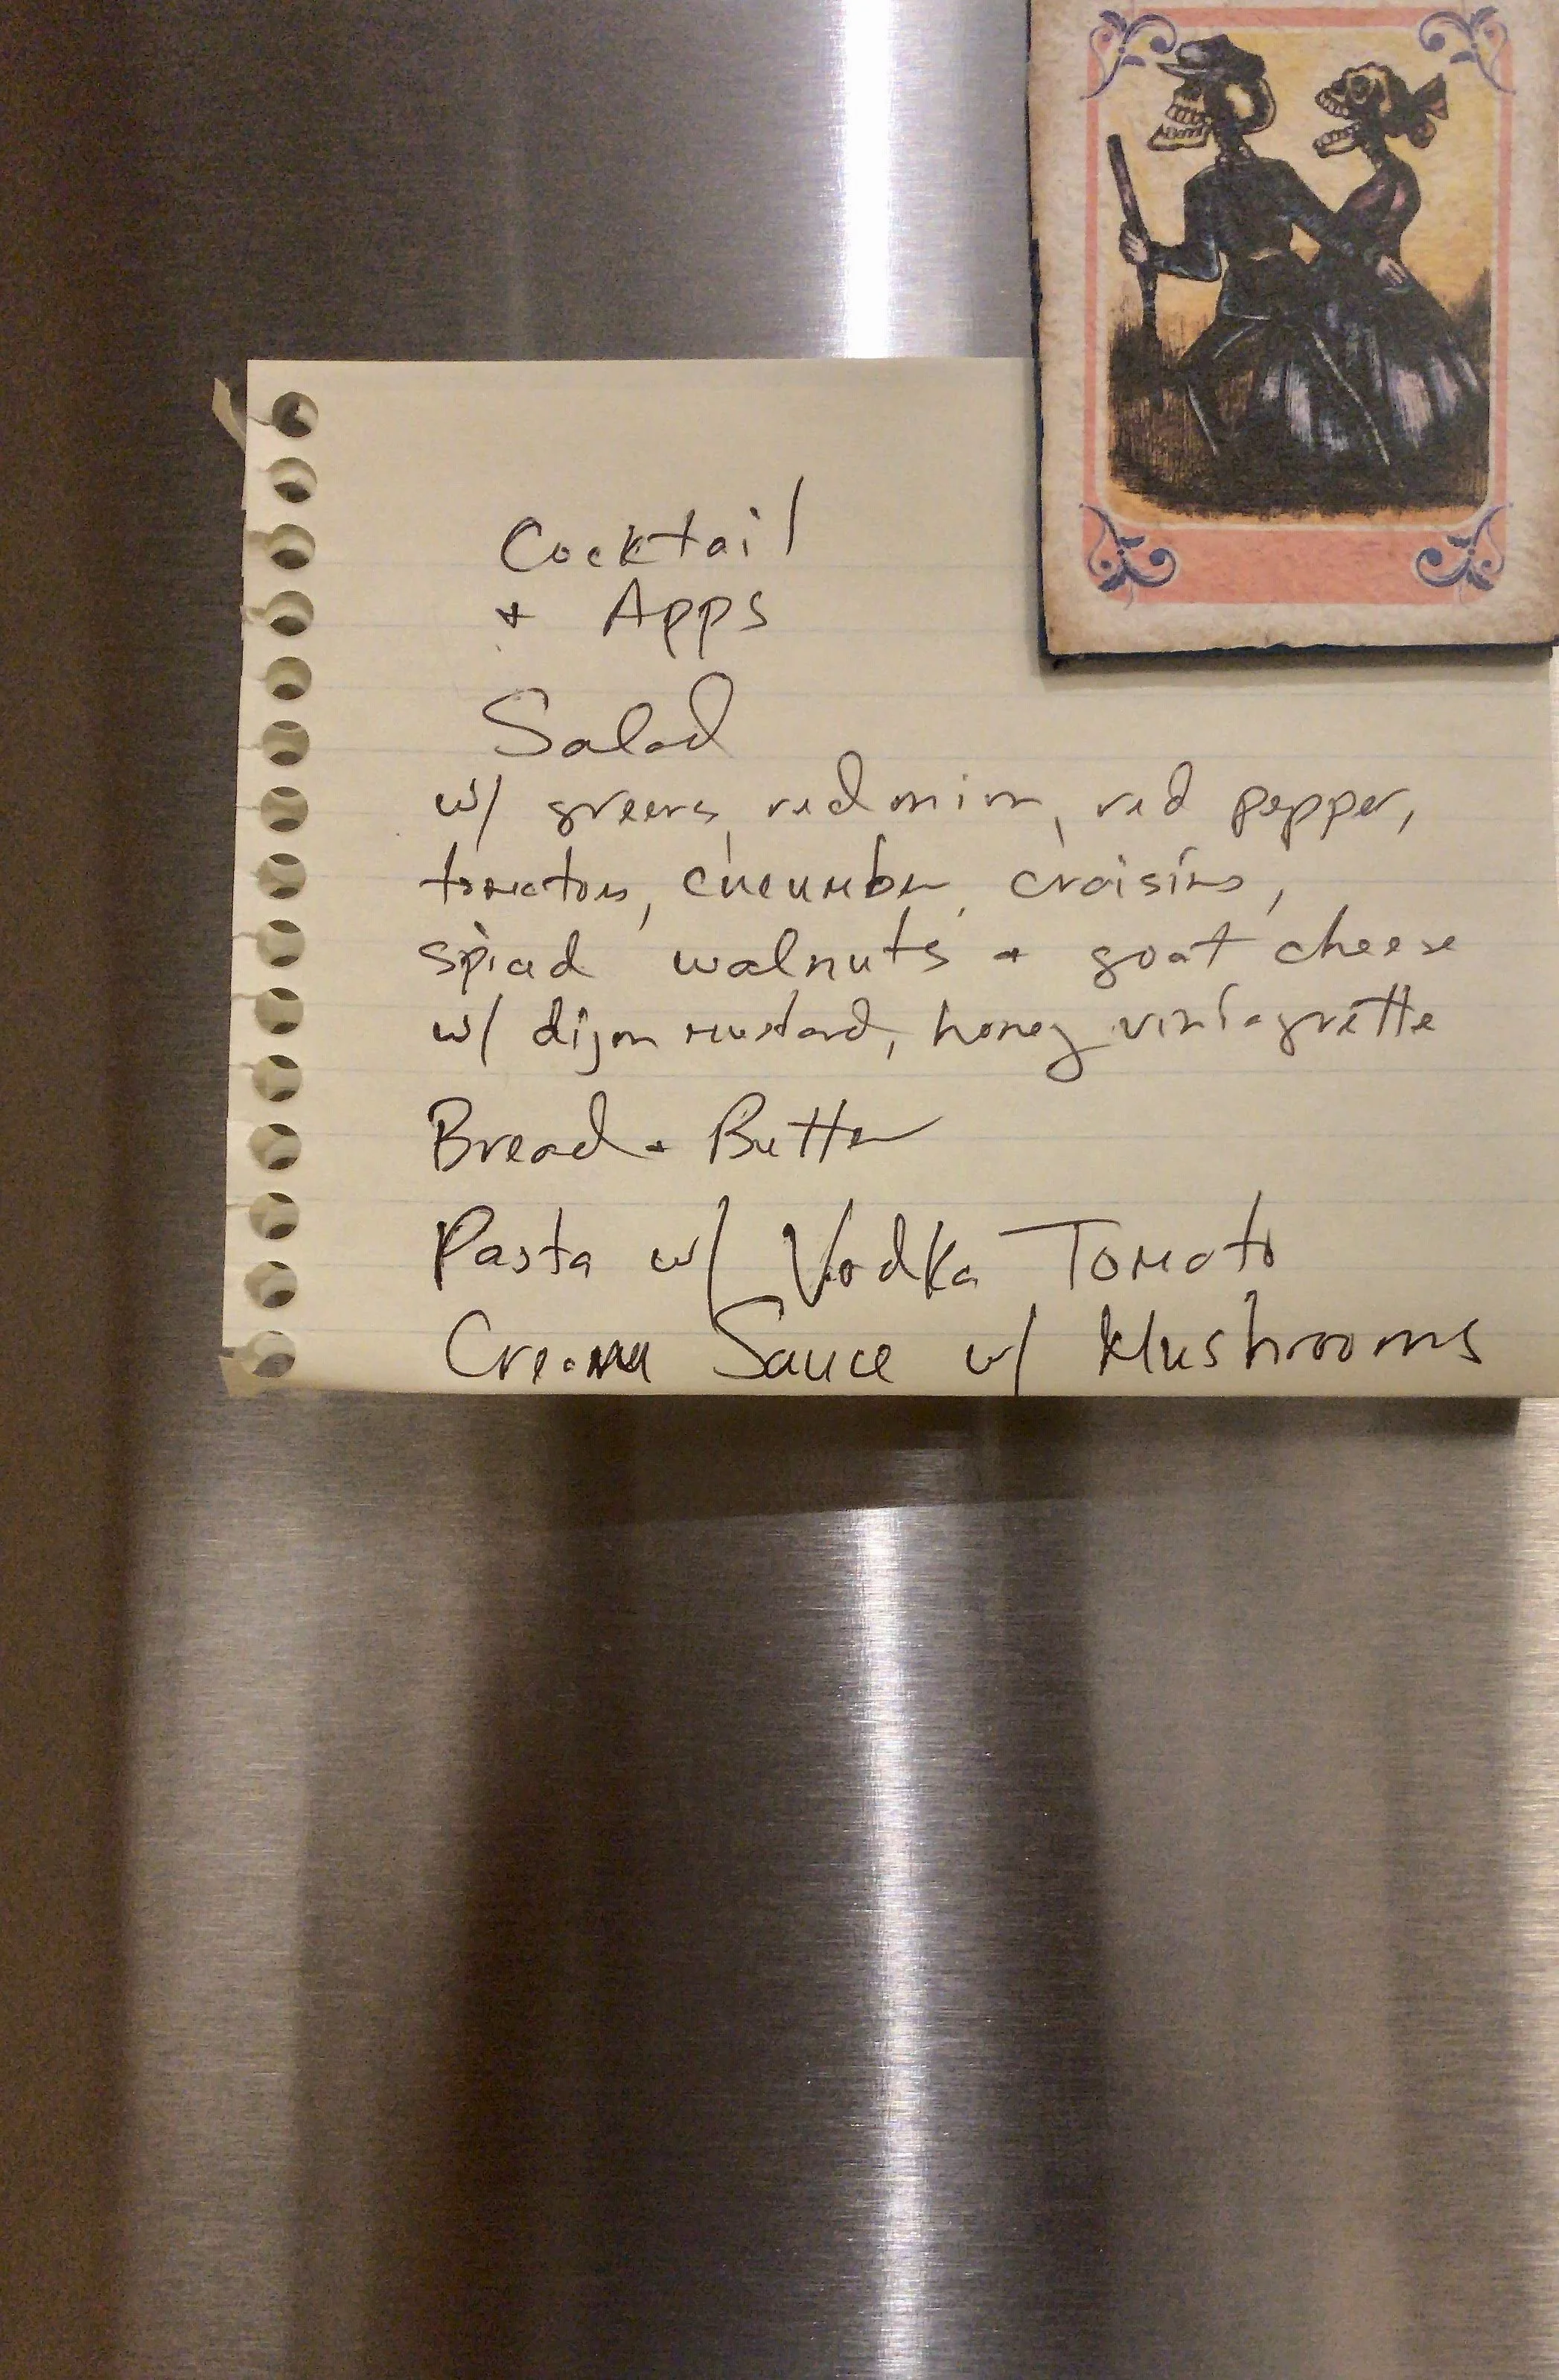 Cocktail
+ Apps
Salad
w/ greens, red onion, red pepper,
tomatoes, cucumber, craisins,
spiced walnuts + goat cheese
w/ dijon mustard, honey viniagrette
Bread + Butter
Pasta w/ Vodka Tomato
Cream Sauce w/ Mushrooms